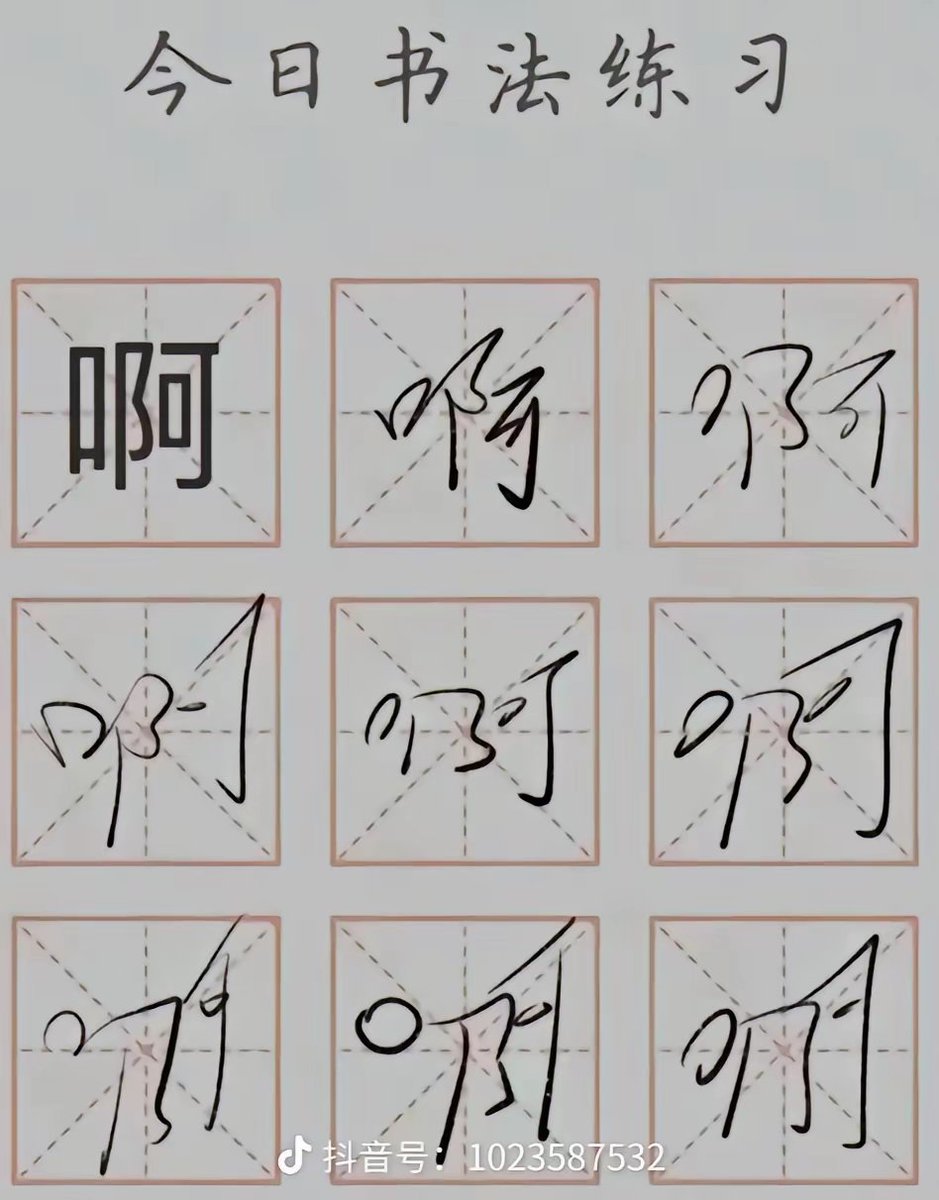 今日书法练习
啊 啊 啊
啊 啊 啊
啊 啊 啊
抖音号：1023587532